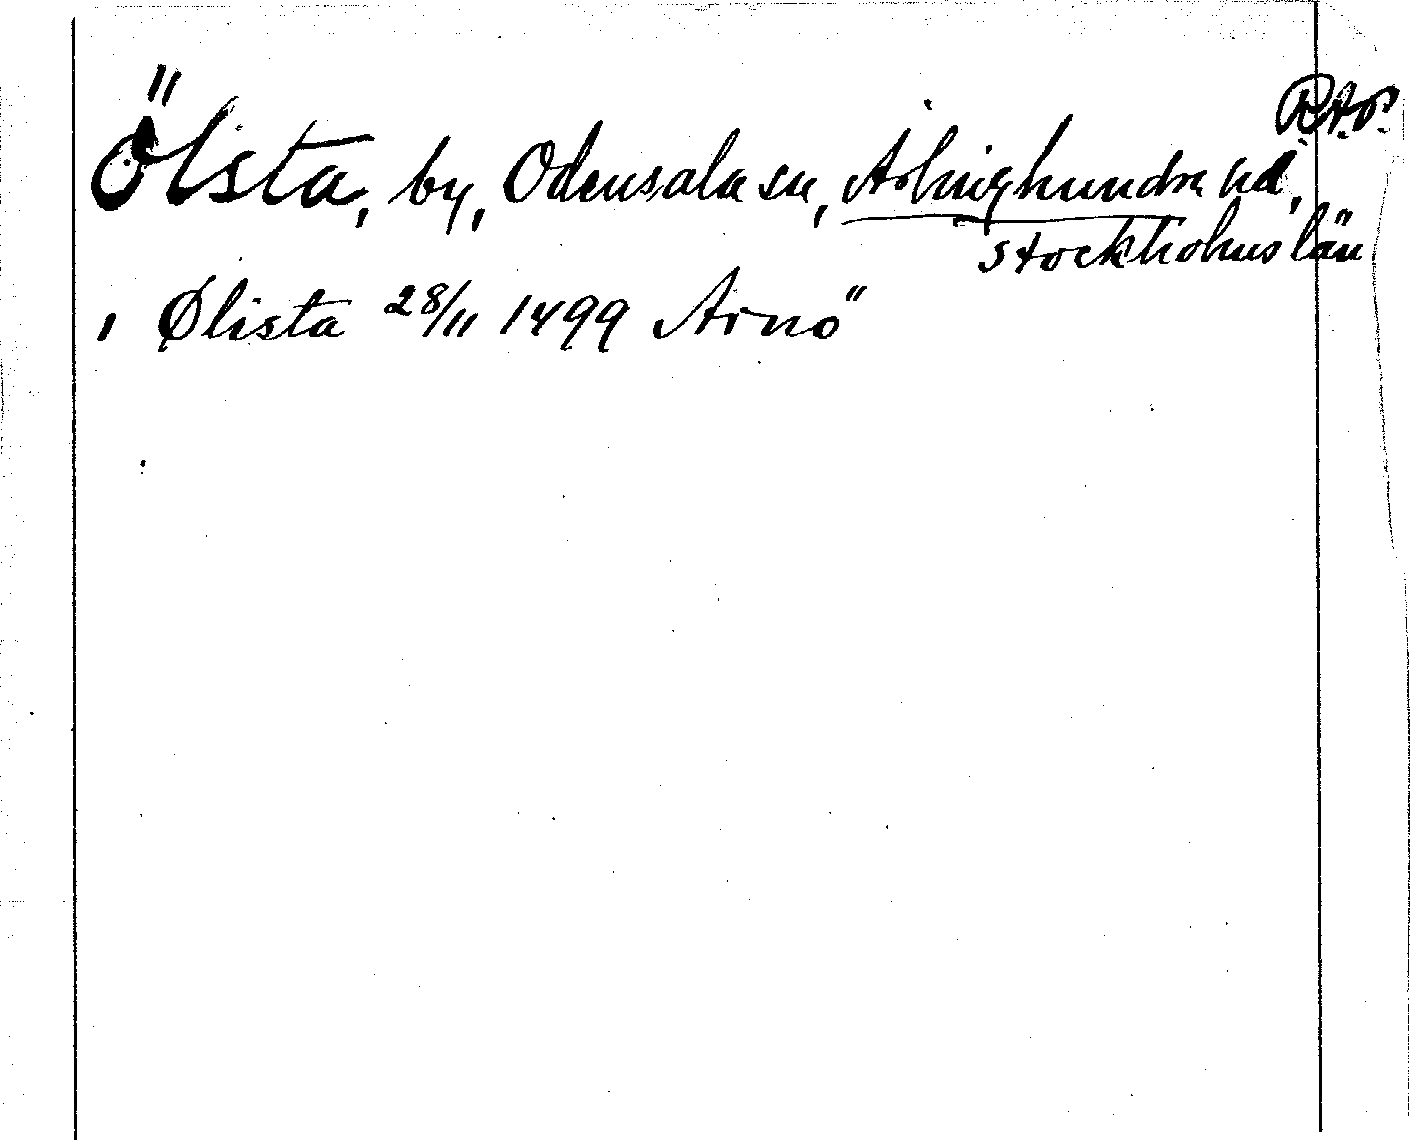 RAP.
Ölsta, by, Odensala sn, Ärlinghundra hd,
Stockholms län
, Ølista 28/11 1499 Arnö